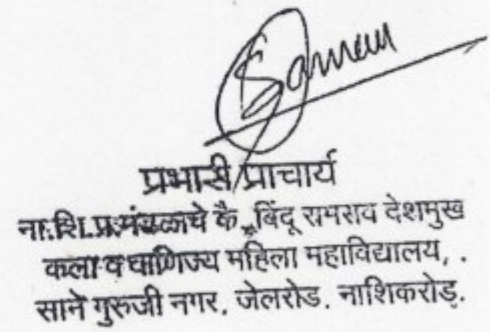 प्रभारी प्राचार्य
ना.शि.प्र.मंडळाचे कै. बिंदू रामराव देशमुख
कला व वाणिज्य महिला महाविद्यालय, .
साने गुरुजी नगर, जेलरोड, नाशिकरोड.